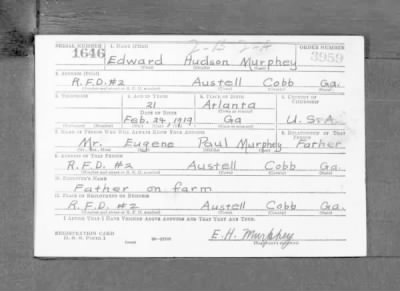 SERIAL NUMBER 1. NAME (Print) ORDER NUMBER
1646 Edward Hudson Murphey 2-B 2-A 3959
(First) (Middle) (Last)
2. ADDRESS (Print)
R.F.D. #2 Austell Cobb Ga.
3. TELEPHONE 4. AGE IN YEARS 5. PLACE OF BIRTH 6. COUNTRY OF CITIZENSHIP
21 Atlanta
DATE OF BIRTH
Feb. 24, 1919 Ga U.S.A.
7. NAME OF PERSON WHO WILL ALWAYS KNOW YOUR ADDRESS 8. RELATIONSHIP OF THAT PERSON
Mr. Eugene Paul Murphey Father
9. ADDRESS OF THAT PERSON
R.F.D. #2 Austell Cobb Ga.
10. EMPLOYER'S NAME
Father on farm
11. PLACE OF EMPLOYMENT OR BUSINESS
R.F.D. #2 Austell Cobb Ga.
I AFFIRM THAT I HAVE VERIFIED ABOVE ANSWERS AND THAT THEY ARE TRUE.
REGISTRATION CARD
D. S. S. FORM 1
E.H. Murphey